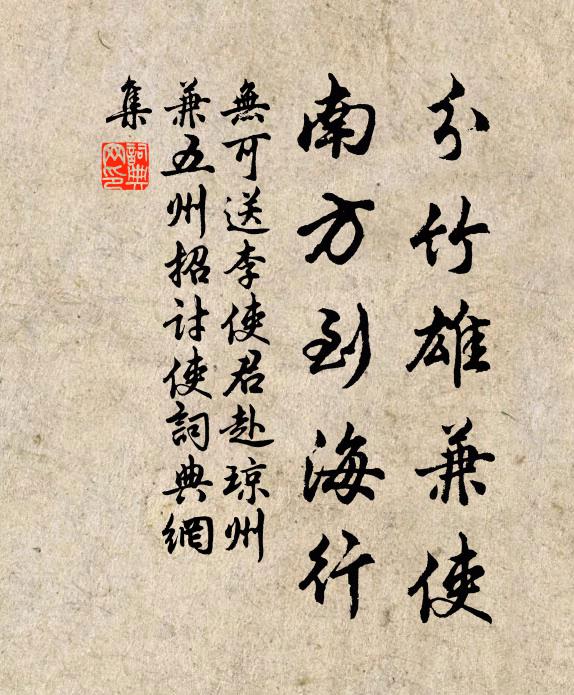 分竹雄兼使
南方到海行
無可送李使君赴琼州
兼五州招討使詞典網
集
詞典
网印